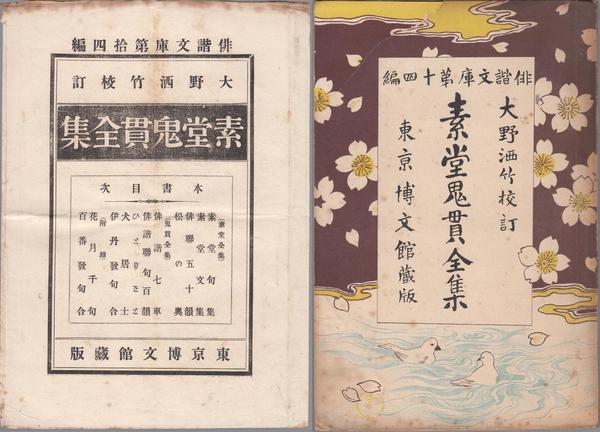 俳諧文庫第拾四編
大野洒竹校訂
素堂鬼貫全集
本書目次
(素堂全集)
素堂句集
素堂文集
俳聯五十韻
松の奥
(鬼貫全集)
俳諧七車
俳諧聯句百韻
ひとりごと
犬居士
伊丹發句合
(附錄)
花月千句
百番發句合
東京博文館藏版
俳諧文庫第十四編
大野洒竹校訂
素堂鬼貫全集
東京博文館藏版